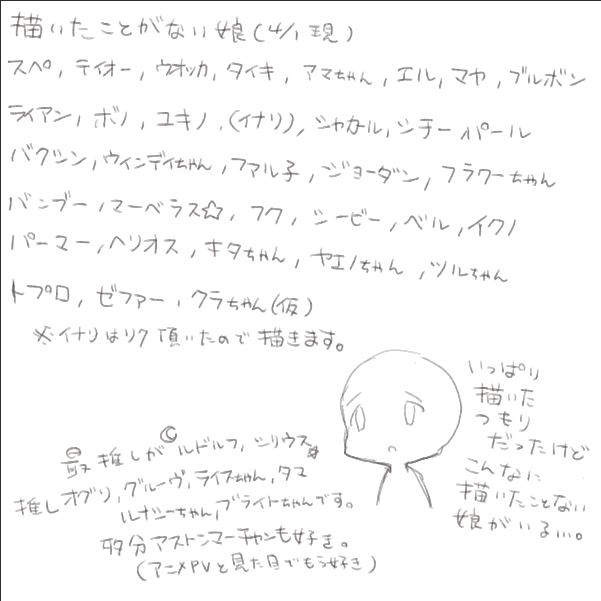 描いたことがない娘(4/1現)
スペ, テイオー, ウオッカ, タイキ, アマちゃん, エル, マヤ, ブルボン
ライアン, ボノ, ユキノ, (イナリ), シャカール, シチー パール
バクシン, ウィンディちゃん, ファル子, ジョーダン, フラワーちゃん
バンブー, マーベラス☆, フク, シービー, ベル, イクノ
パーマー, ヘリオス, キタちゃん, ヤエノちゃん, ツルちゃん
トプロ, ゼファー, クラちゃん(仮)
※イナリはリク頂いたので描きます。
いっぱい
描いた
つもり
だったけど
こんなに
描いたことない
娘がいる…。
最推しがルドルフ, シリウス
推しオグリ, グルーヴ, ライスちゃん, タマ
ルナシーちゃん, ブライトちゃんです。
多分アストンマーチャンも好き。
(アニメPVと見た目でもう好き)